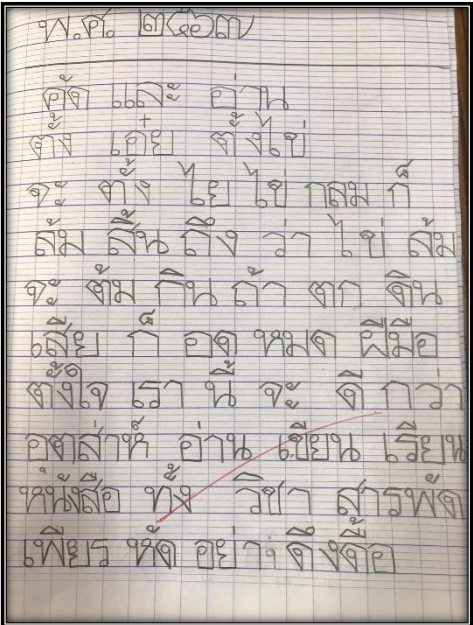 พ.ศ. ๒๕๖๗
คัด และ อ่าน
ตั้ง เอ๋ย ตั้งไข่
จะ ตั้ง ไย ไข่ กลม ก็
ล้ม สิ้น ถึง ว่า ไข่ ล้ม
จะ ต้ม กิน ถ้า ตก ดิน
เสีย ก็ อด หมด ฝีมือ
ตั้งใจ เรา นี้ จะ ดี กว่า
อุตส่าห์ อ่าน เขียน เรียน
หนังสือ ทั้ง วิชา สารพัด
เพียร หัด อย่า ดึงดื้อ